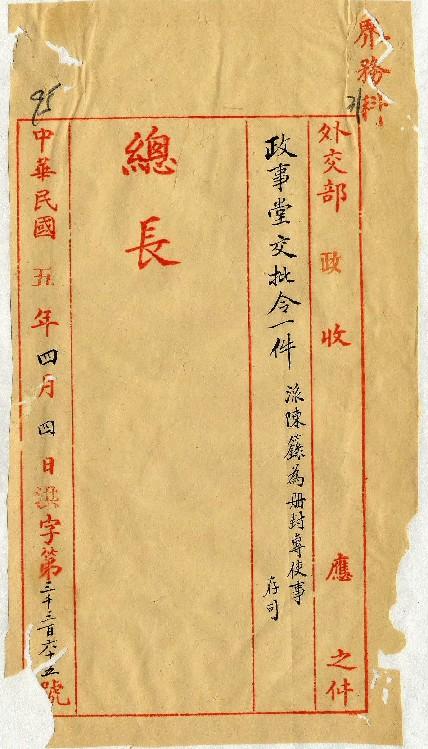 界務科
外交部 政 收 應 之件
政事堂交批令一件 派陳籙為册封專使事
存司
總長
中華民國 五年 四月 四日 洪字第三千三百六十五號
95